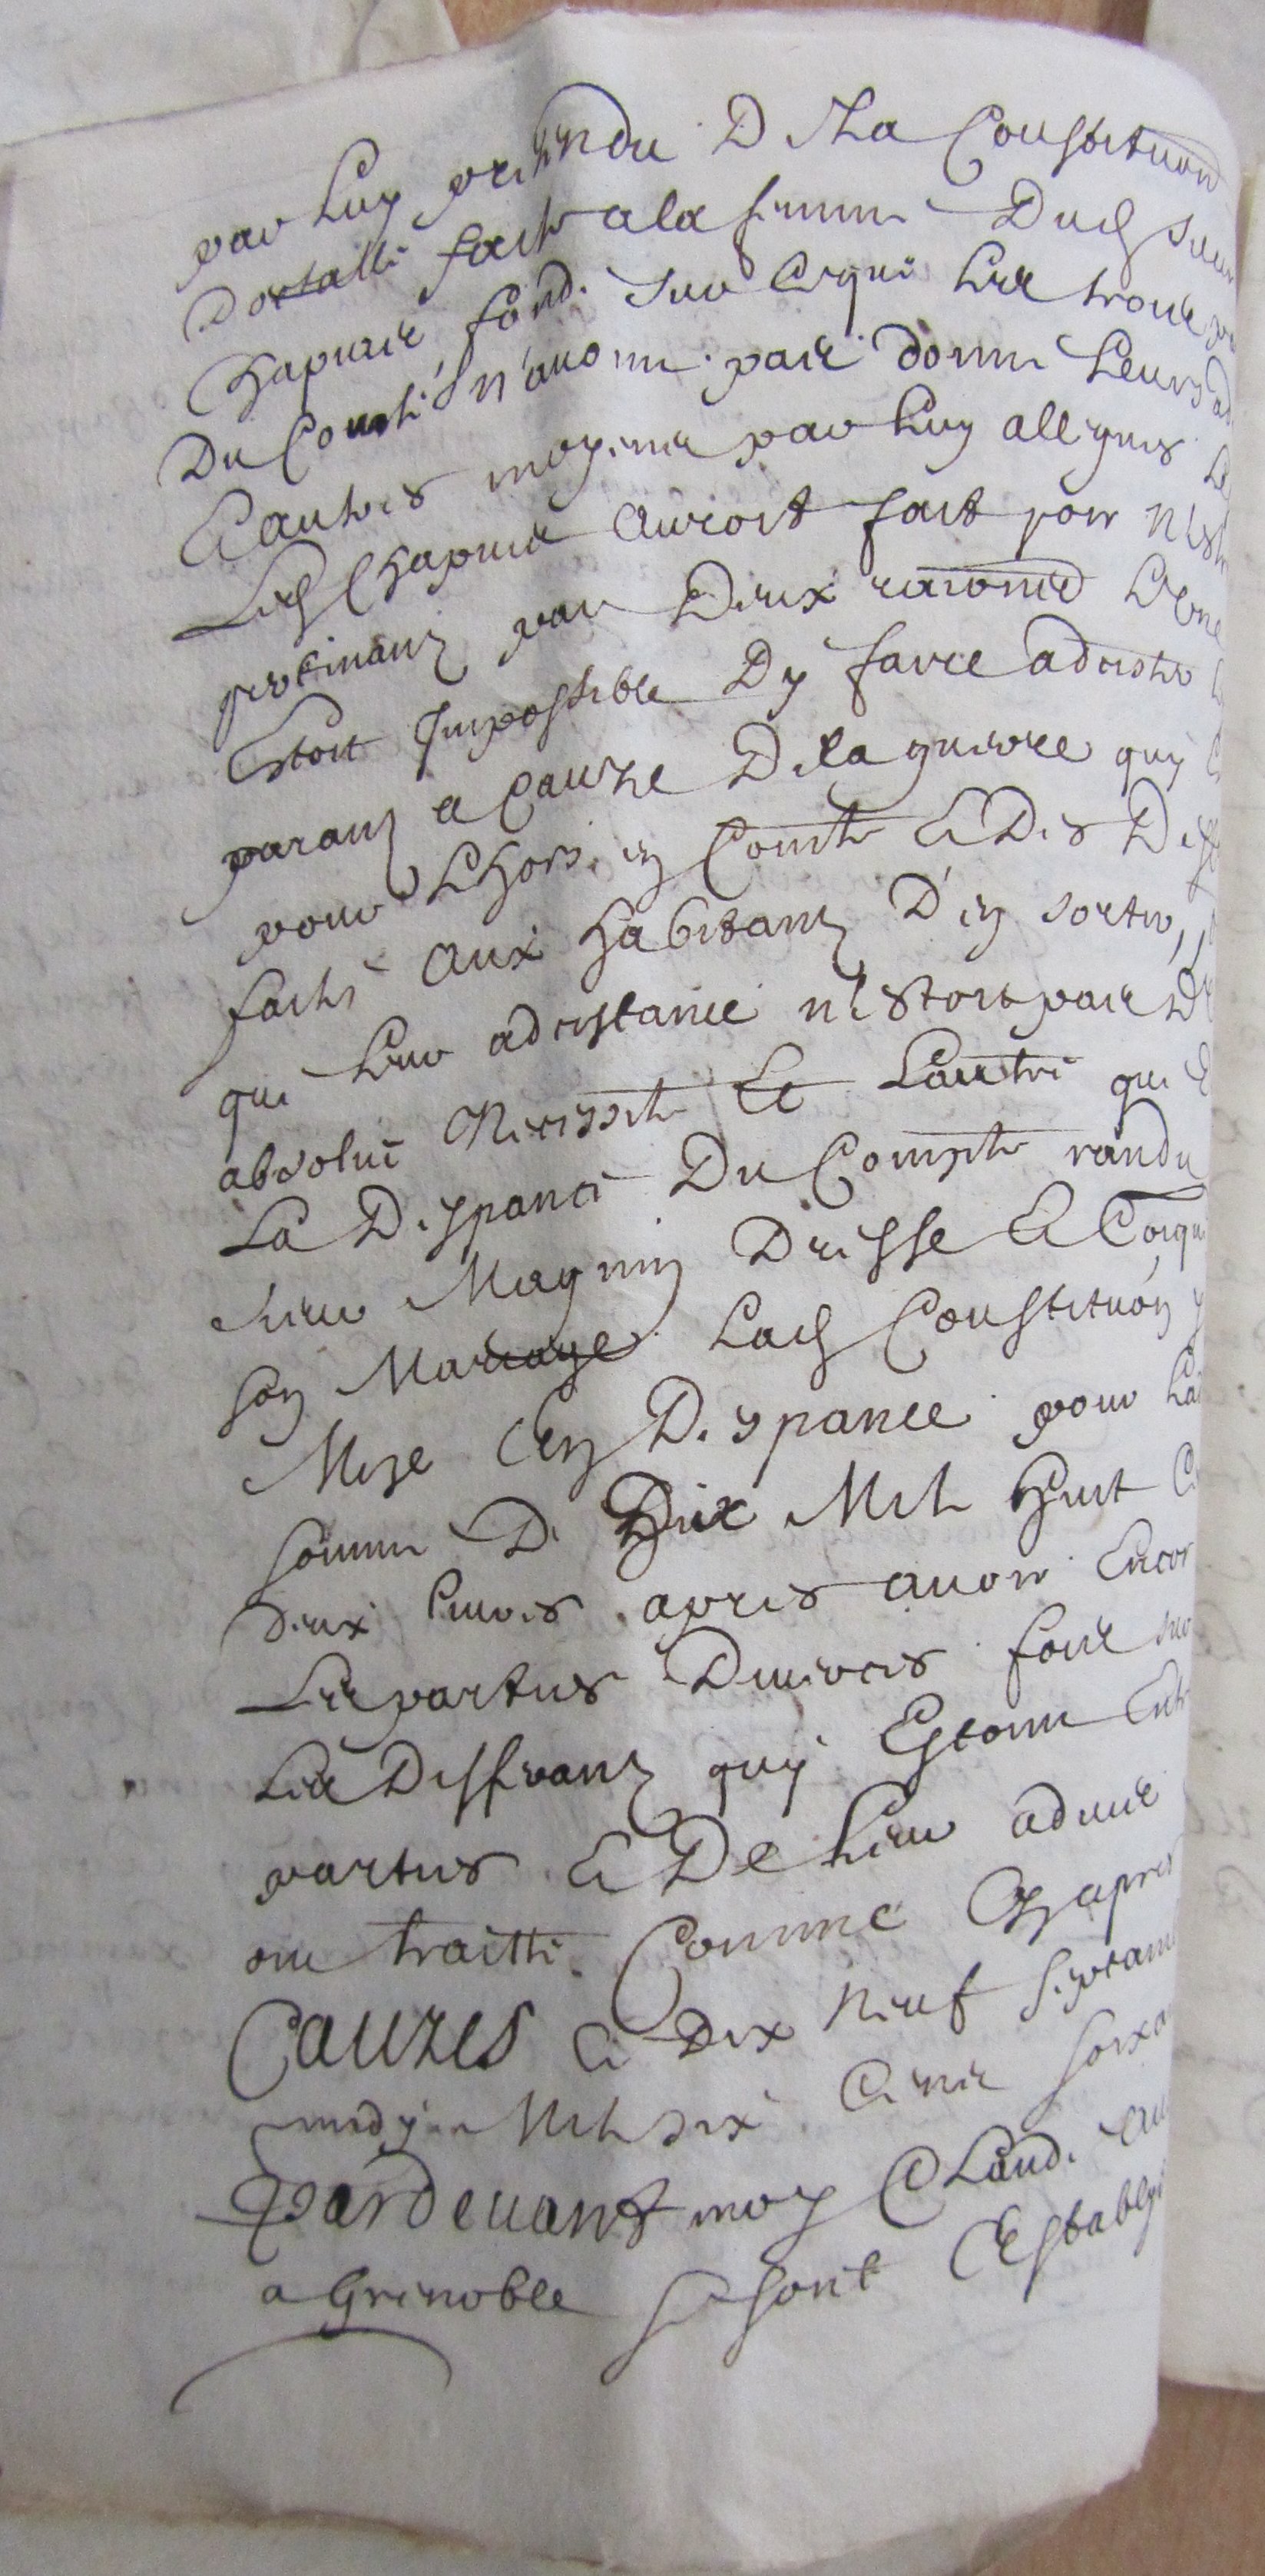 par luy pretendu De la Constitution
Dotalle faite a la femme Dud sieur
Chapuis fonde sur ce que les trois
Du Costé n'auoint pais donne leurs
Et autres moyens par luy allegues
Led Chapuis auroit fait voir
pertinanz par Deux raions L'une
Estoit Impossible Dy faire adcister
paranz a Cauze De la guerre quy
pour lhors en Comté Et Des
faites aux habitanz D'en sortir,
que leur adcistance n'estoit pais
absolue Necessité Et L'autre que
La Despance Du Compte randu
sieur Magnin Dresse Et
son Mariage Lad Constitution
Mize En Despance pour
somme De Dix Mil huit
deux liures apres auoir Encor
Les parties Diuerses fois
Les Diffranz quy Estoint
parties Et De leur aduis
ont traitté Comme Cy apres
Cauzes Ce Dix neuf
midy Mil six Cens
Pardeuant moy Claude
a Grenoble se sont Establys